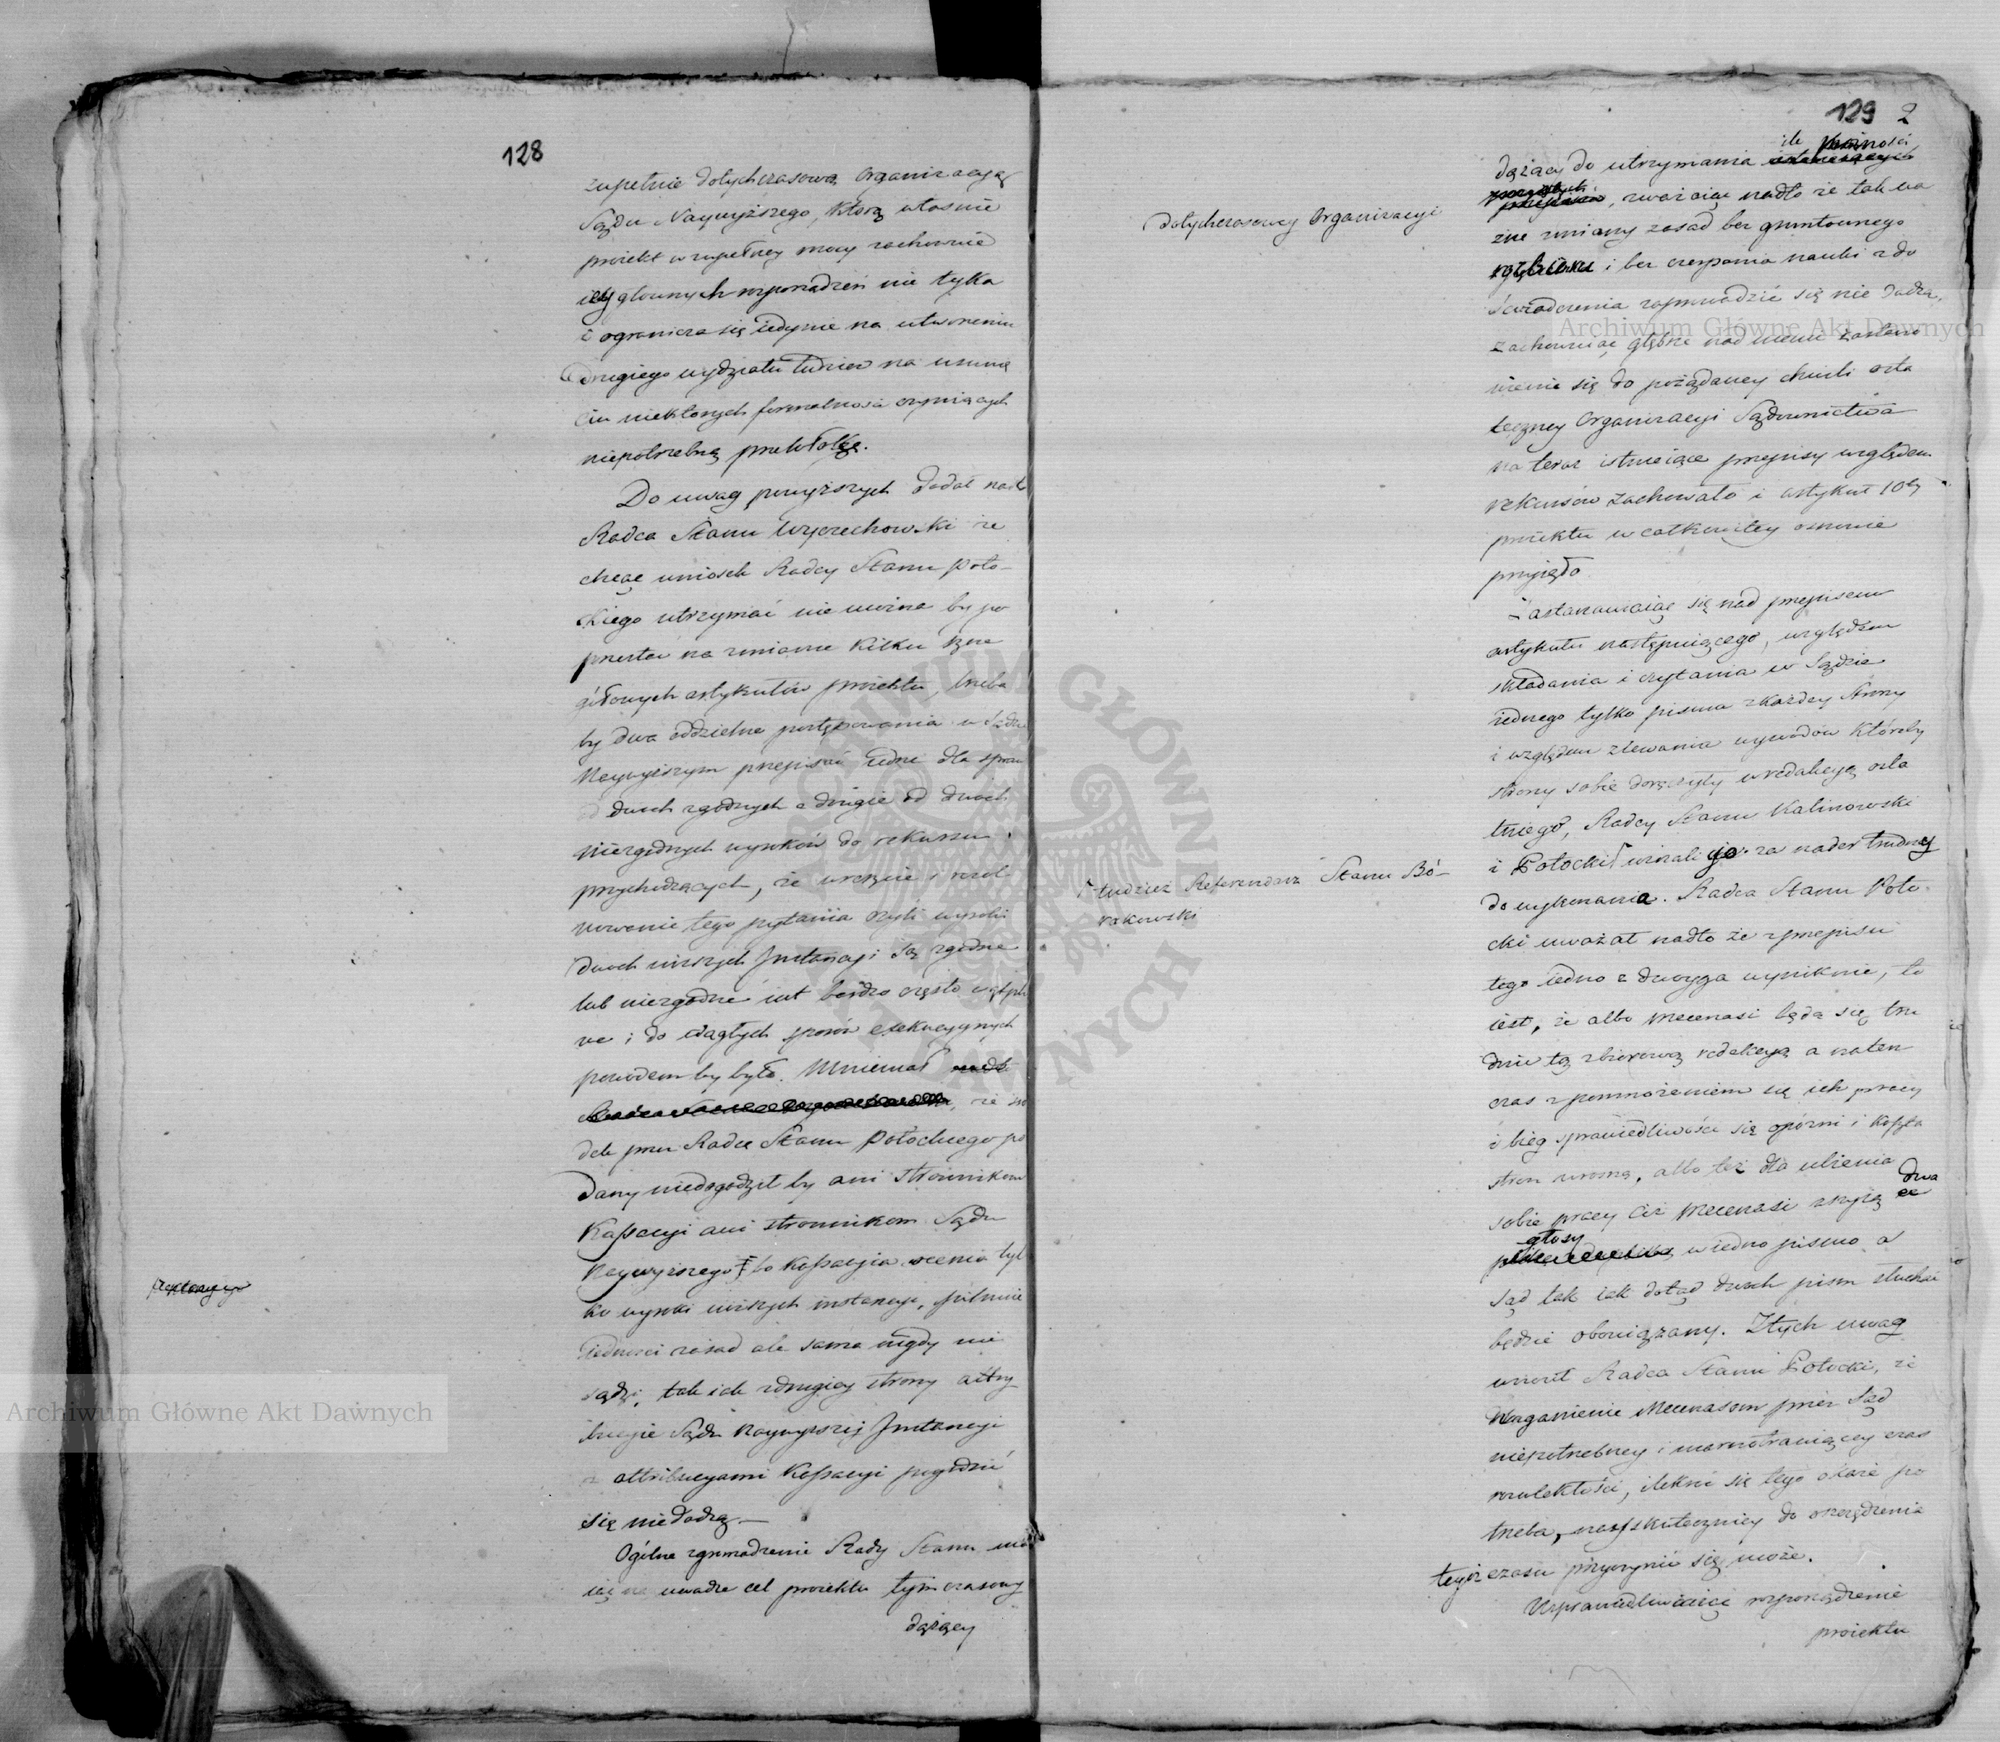 128
zupełnie dotychczasową organizacyią
Sądu Naywyższego, którą właśnie
proiekt w zupełney mocy zachownie
iey głownych rozporządzeń nie tyka
i ogranicza się iedynie na utworzeniu
drugiego wydziału tudzież na usunię
ciu niektorych formalności czyniących
niepotrzebną przewłokę.
Do uwag powyższych dodał nadto
Radca Stanu Wyczechowski że
chcąc wniosek Radcy Stanu Poto-
ckiego utrzymać nie można by po
przestać na zmianie kilku szcze
gółowych artykułów proiektu, trzeba
by dwa oddzielne postępowania w Sądzie
Naywyższym przepisać iedne dla spraw
od dwoch zgodnych a drugie od dwóch
niezgodnych wyroków do rekursu
przychodzących, że wreszcie i rozol
wowanie tego pytania czyli wyroki
dwoch niższych Instancyi są zgodne
lub niezgodne iest bardzo często wątpli
we i do ciągłych sporów exekucyynych
powodem by było. Mniemał
że śro
dek przez Radcę Stanu Potockiego po
dany niedogodził by ani stronnikom
Kassacyi ani stronnikom Sądu
Naywyższego bo Kassacyia ocenia tyl
ko wyroki niższych instancyi, pilnuie
iedności zasad ale sama nigdy nie
sądzi, tak iak z drugiey strony attry
bucyie Sądu Naywyższej Instancyi
z attribucyami Kassacyi pogodzić
się niedadzą—
Ogólne zgromadzenie Rady Stanu ma
iąc na uwadze cel proiektu tymczasowy
dążący
129 2
ile możności
dążący do utrzymania
dotychczasowey Organizacyi
, zważaiąc nadto że tak wa
żne zmiany zasad bez gruntownego
rozbioru i bez czerpania nauki z do
świadczenia zaprowadzić się nie dadzą,
zachowuiąc głębsze nad niemi zastano
wienie się do pożądaney chwili osta
teczney Organizacyi Sądownictwa
na teraz istnieiące przepisy względem
rekursów zachowało i artykuł 10ty
proiektu w całkowitey osnowie
przyięło.
Zastanawiaiąc się nad przepisem
artykułu następuiącego, względem
składania i czytania w Sądzie
iednego tylko pisma z każdey Strony
i względem zlewania wywodów któreby
strony sobie doręczyły w redakcyą osta
tniego, Radcy Stanu Kalinowski
i Potocki uznali go za nader trudny
tudzież Referendarz Stanu Bo-
rakowski
do wykonania. Radca Stanu Poto-
cki uważał nadto że z przepisu
tego iedno z dwoyga wyniknie, to
iest, że albo Mecenasi będą się tru
dnić tą zbiorową redakcyą a naten
czas z pomnożeniem się ich pracy
i bieg sprawiedliwości się opóźni i koszta
stron wzrosną, albo też dla ulżenia
sobie pracy ciż Mecenasi zszyią dwa
głosy
w iedno pismo a
Sąd tak iak dotąd dwoch pism słuchać
będzie obowiązany. Z tych uwag
wniosł Radca Stanu Potocki, że
naganienie Mecenasom przez Sąd
niepotrzebney i marnotrawiącey czas
rozwlekłości, ilekroć się tego okaże po
trzeba, nayskuteczniey do oszczędzenia
tegoż czasu przyczynić się może.
Usprawiedliwiaiąc rozporządzenie
proiektu
Archiwum Główne Akt Dawnych
Archiwum Główne Akt Dawnych
ARCHIWUM GŁÓWNE AKT DAWNYCH